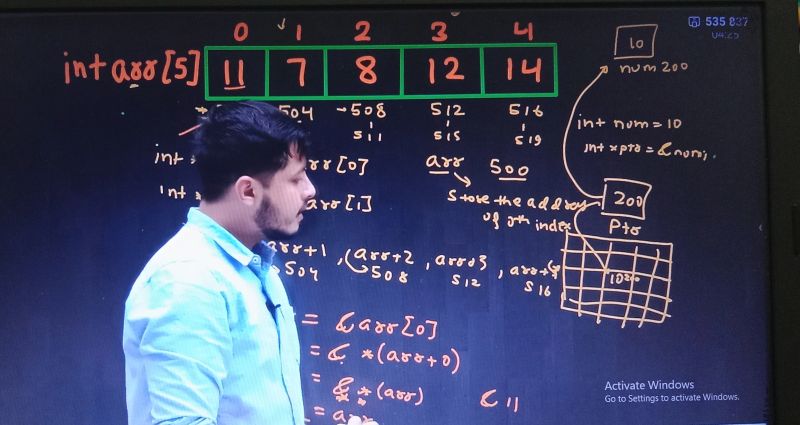 535 837
04:25
0 1 2 3 4
int arr[5] 11 7 8 12 14
504 508 512 516
511 515 519
10
num 200
int num = 10
int *ptr = &num;
int * arr[0]
arr 500
int * arr[1]
Store the address
of 0th index
200
Ptr
arr+1, arr+2, arr+3, arr+4
504 508 512 516
= & arr[0]
= & *(arr+0)
= & *(arr)
& 11
= arr
Activate Windows
Go to Settings to activate Windows.